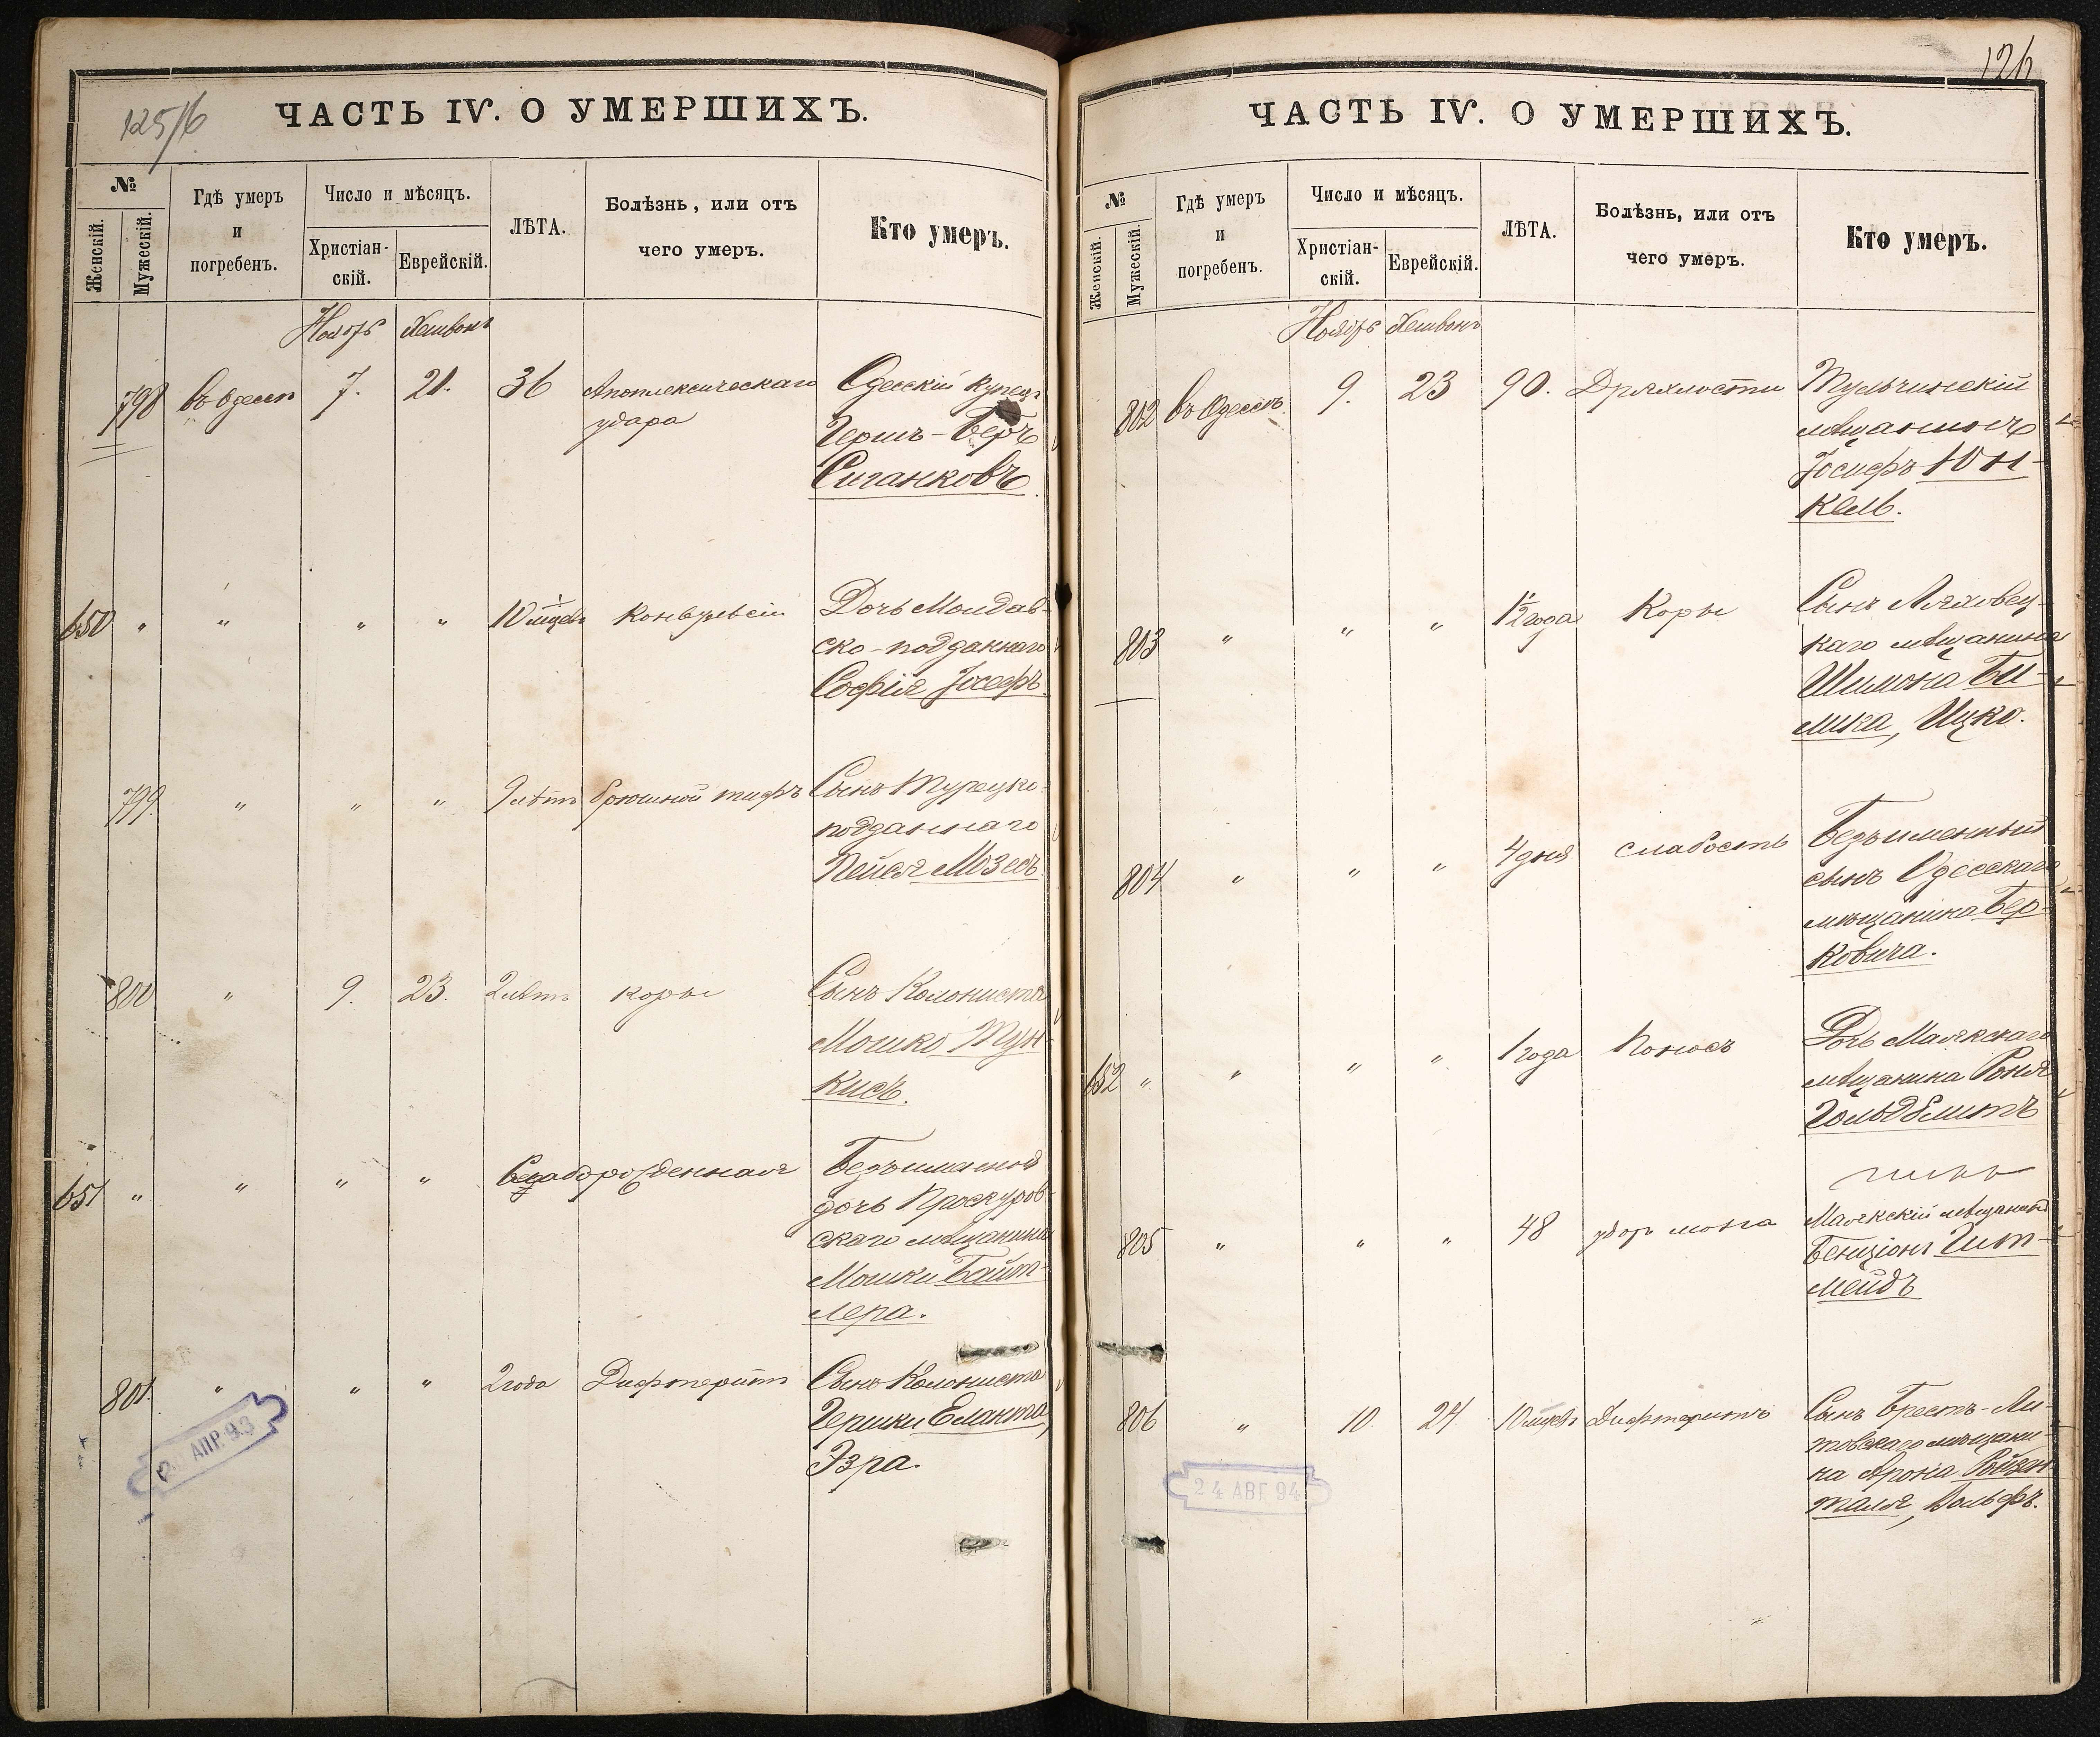 125/6
ЧАСТЬ IV. О УМЕРШИХЪ.
№
Женскій.
Мужескій.
Гдѣ умеръ
и
погребенъ.
Число и мѣсяцъ.
Христіан-
скій.
Еврейскій.
ЛѢТА.
Болѣзнь, или отъ
чего умеръ.
Кто умеръ.
Ноябрь Хешвонъ
798 въ Одессѣ 7. 21. 36 Апоплексическаго Одесскій купецъ
удара Гершъ-Беръ
Сиганковъ
650 " " " " 10 мцевъ Конвульсіи Дочь Молдав-
ско-подданнаго
Софія Іосефъ
799 " " " 9 лѣтъ брюшной тифъ Сынъ Турецко-
подданнаго
Пейся Мозесъ
800 " 9. 23. 2 лѣтъ корь Сынъ Колониста
Мошко Тун-
кисъ.
651 " " " " Слаборожденная Безъименной
дочь Проскуров-
скаго мѣщанина
Мошки Байт-
лера.
801 " " " 2 года Дифтеритъ Сынъ Колониста
Гершки Еланта,
Эзра.
АПР. 93
126
ЧАСТЬ IV. О УМЕРШИХЪ.
№
Женскій.
Мужескій.
Гдѣ умеръ
и
погребенъ.
Число и мѣсяцъ.
Христіан-
скій.
Еврейскій.
ЛѢТА.
Болѣзнь, или отъ
чего умеръ.
Кто умеръ.
Ноябрь Хешвонъ
802 въ Одессѣ 9. 23 90. Дряхлости Тульчинскій
мѣщанинъ
Іосифъ Юн-
кель.
803 " " " 1½ года Корь Сынъ Ляховец-
каго мѣщанина
Шимона Би-
лика, Ицко.
804 " " " 4 дня слабость Безъименный
сынъ Одесскаго
мѣщанина Бер-
ковича.
652 " " " " 1 года Поносъ Дочь Маякскаго
мѣщанина Роня
Гольдблитъ
805 " " " 48 удар мозга Маякскій мѣщанинъ
Бенціонъ Гит-
мейдъ
806 " 10. 24. 10 мцевъ Дифтеритъ Сынъ Брестъ-Ли-
товскаго мѣщани-
на Арона Ройзен-
таля, Вольфъ.
24 АВГ. 94